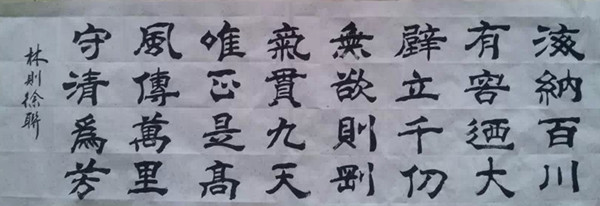 海納百川
有容迺大
壁立千仞
無欲則剛
氣貫九天
唯正是高
風傳萬里
守清為芳
林則徐聯